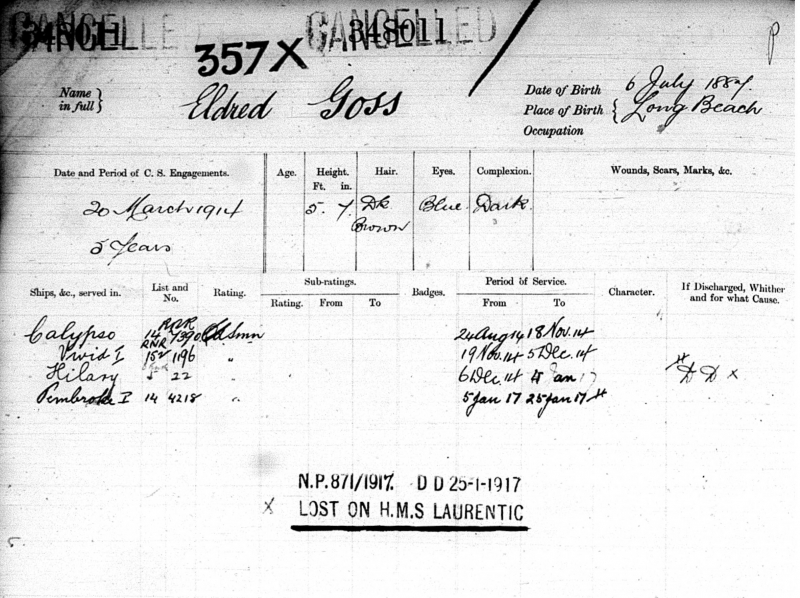 CANCELLED 348011 CANCELLED 348011
357X
P
Name in full } Eldred Goss
Date of Birth 6 July 1887.
Place of Birth { Long Beach
Occupation
Date and Period of C. S. Engagements. Age. Height. Ft. in. Hair. Eyes. Complexion. Wounds, Scars, Marks, &c.
20 March 1914 5. 7. Dk Blue Dark.
5 Years Brown
Ships, &c., served in. List and No. Rating. Sub-ratings. Rating. From To Badges. Period of Service. From To Character. If Discharged, Whither and for what Cause.
Calypso 14 RNR 7390 Smn 24 Aug 14 18 Nov. 14
Vivid I 15 1196 " 19 Nov. 14 5 Dec. 14
Hilary 5 22 6 Dec. 14 4 Jan 17 D D x
Pembroke I 14 4218 " 5 Jan 17 25 Jan 17
N.P.871/1917. D D 25-1-1917
X LOST ON H.M.S LAURENTIC